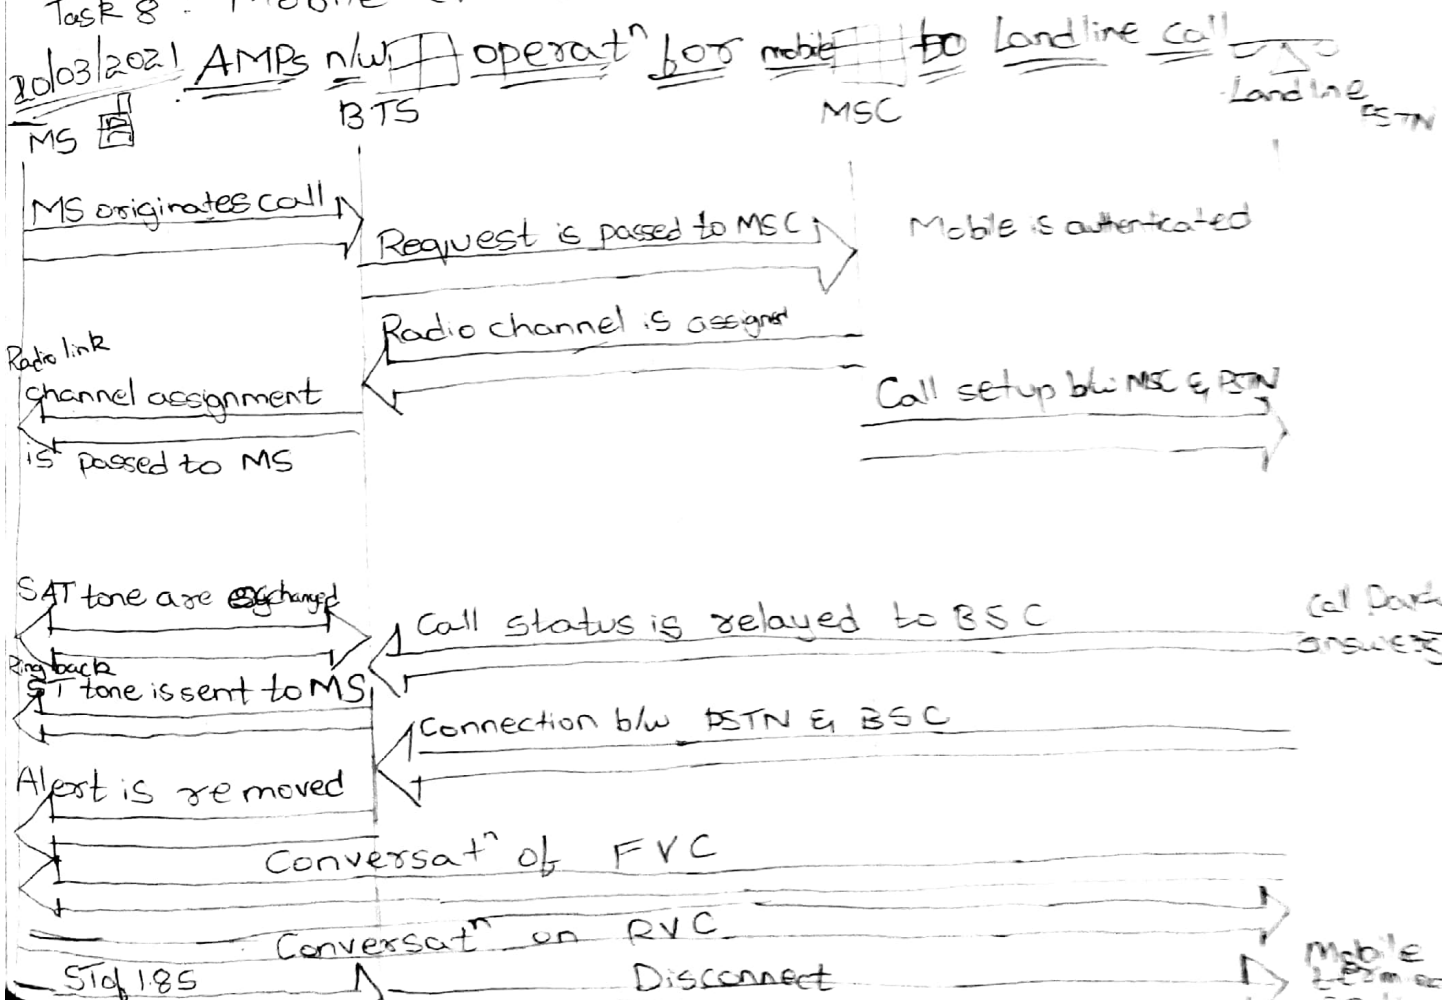 Task 8 : Mobile
20/03/2021 AMPs n/w operatⁿ for mobile to Landline call
MS
BTS
MSC
Landline
PSTN
MS originates call
Request is passed to MSC
Mobile is authenticated
Radio channel is assigned
Radio link
channel assignment
is passed to MS
Call setup b/w MSC & PSTN
SAT tone are exchanged
Call status is relayed to BSC
answers
Ring back
ST tone is sent to MS
Connection b/w PSTN & BSC
Alert is removed
Conversatⁿ of FVC
Conversatⁿ on RVC
ST of 1.8S
Disconnect
Mobile